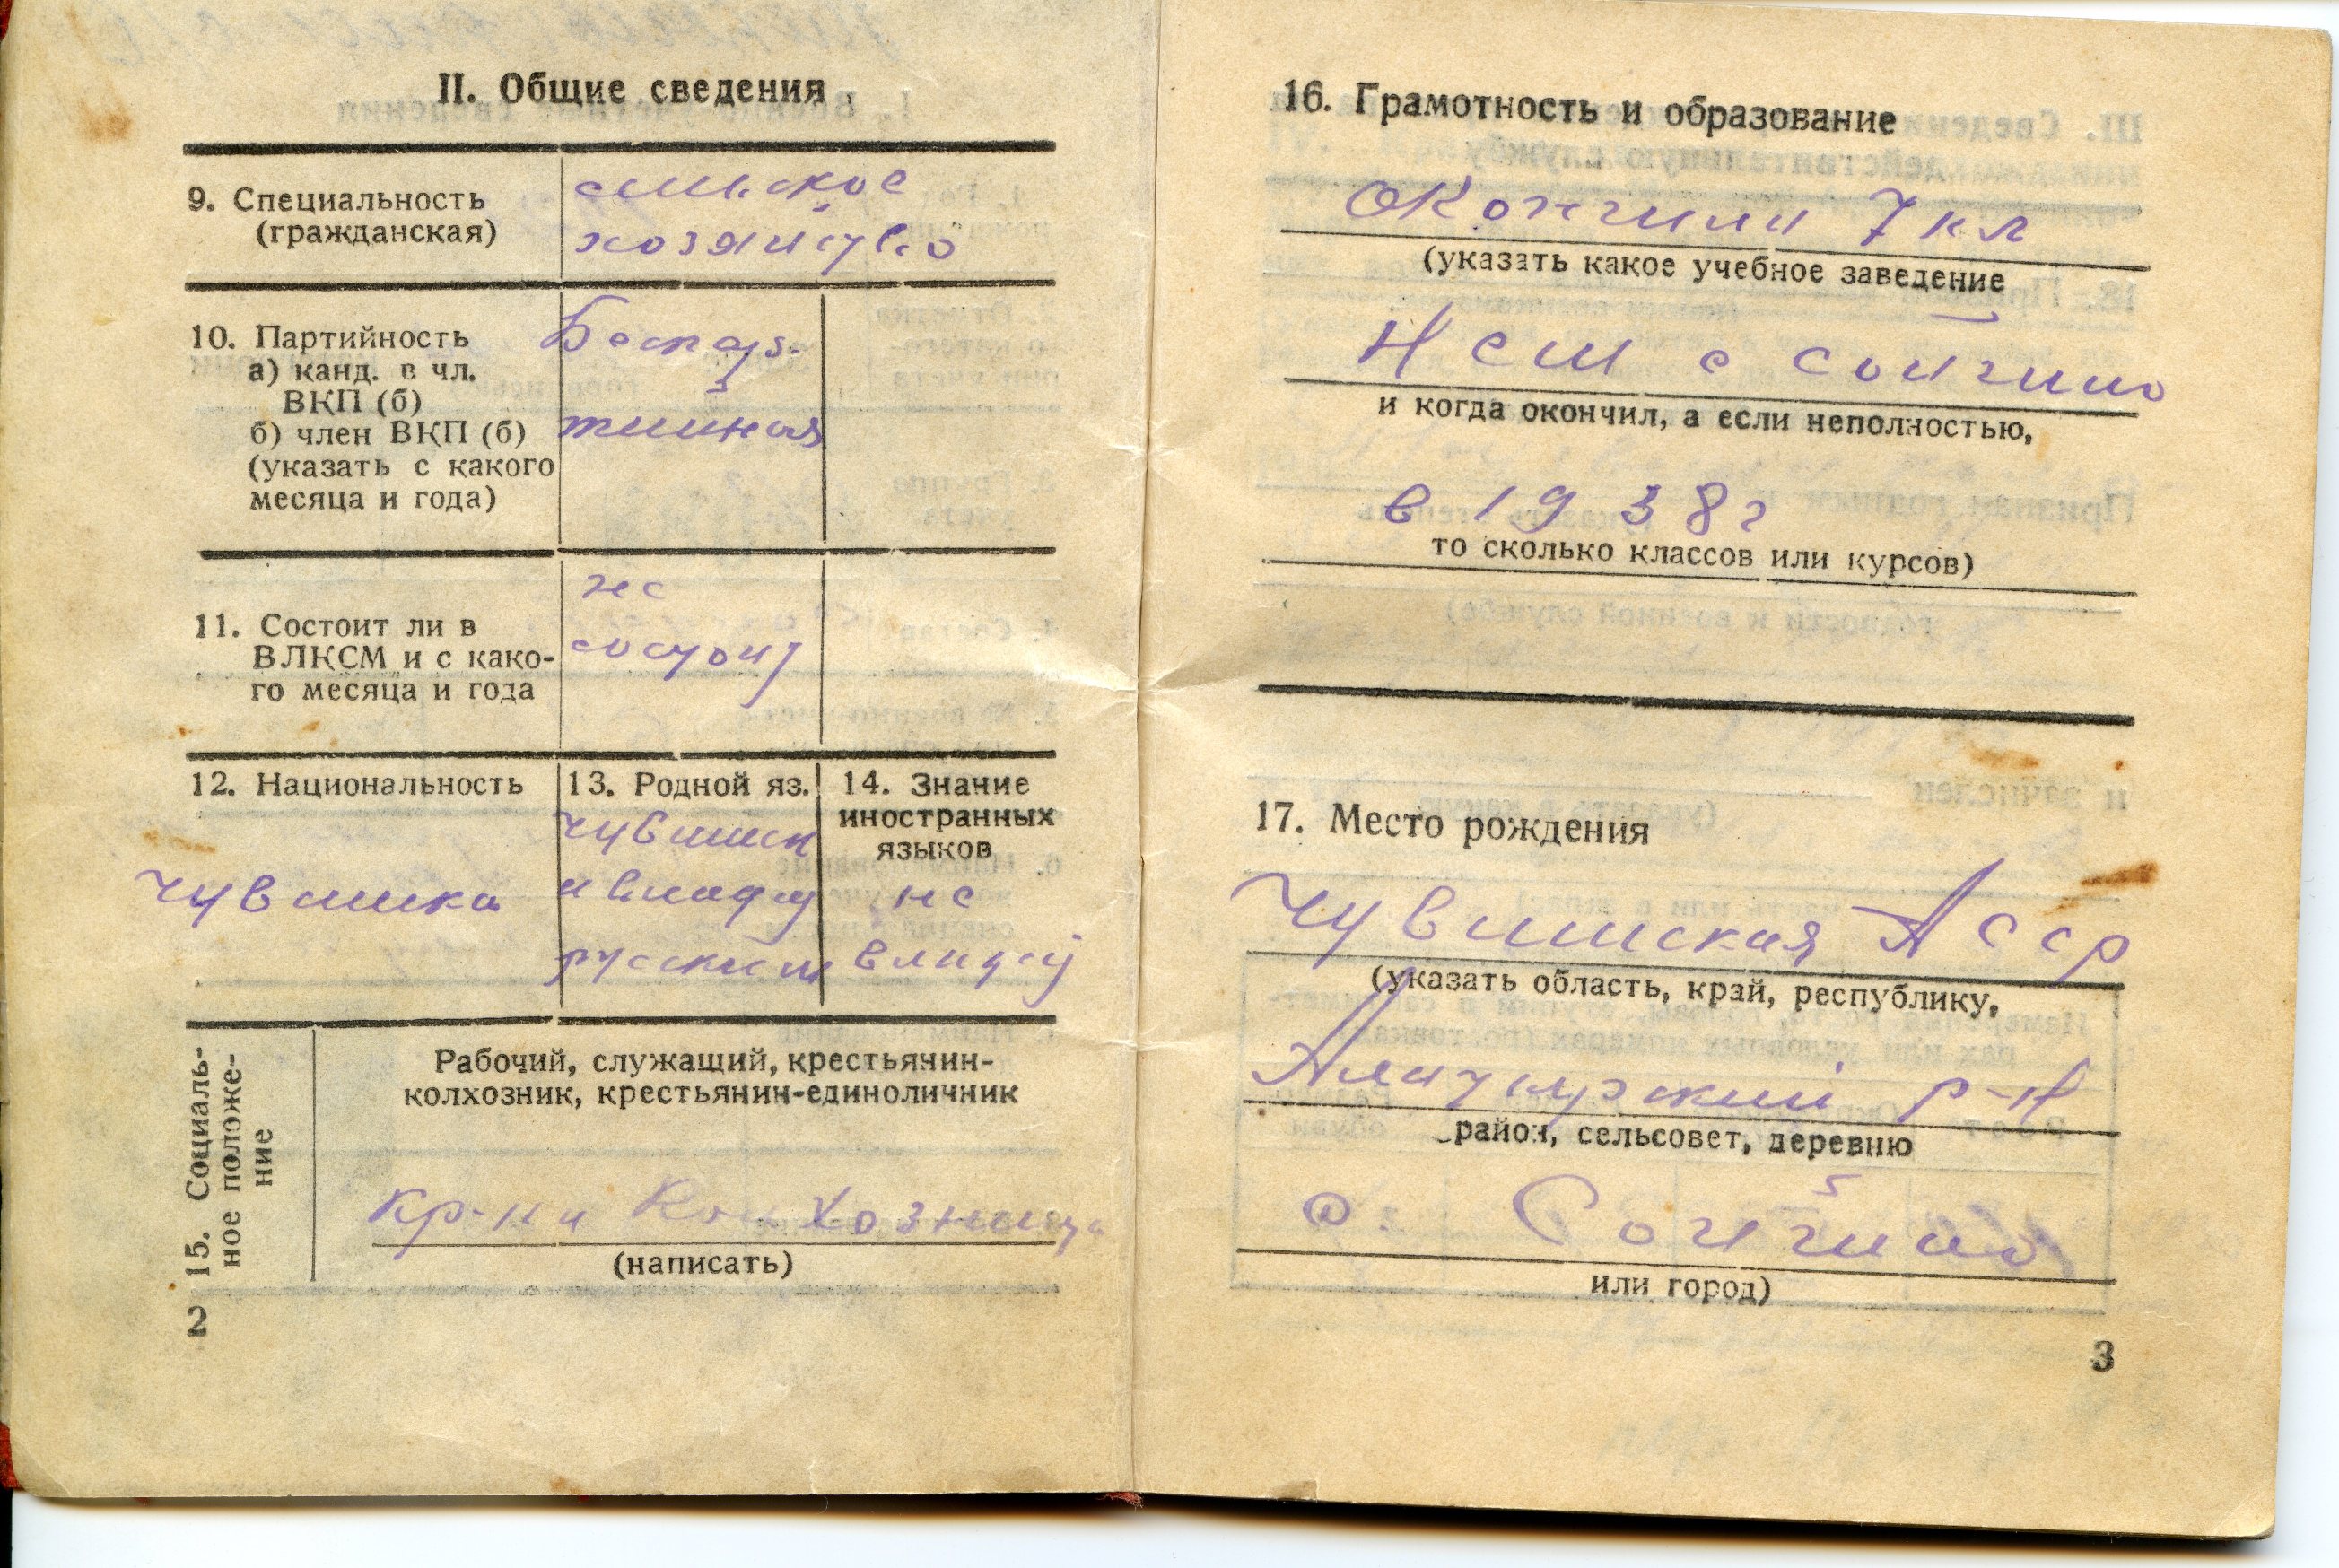 II. Общие сведения
9. Специальность
(гражданская)
сельское
хозяйство
10. Партийность
а) канд. в чл.
ВКП (б)
б) член ВКП (б)
(указать с какого
месяца и года)
Беспар-
тийная
11. Состоит ли в
ВЛКСМ и с како-
го месяца и года
не
состоит
12. Национальность
чувашка
13. Родной яз.
чувашск
и владеу
русским
14. Знание
иностранных
языков
не
владеу
15. Социаль-
ное положе-
ние
Рабочий, служащий, крестьянин-
колхозник, крестьянин-единоличник
кр-ка колхозница
(написать)
2
16. Грамотность и образование
окончила 7 кл
(указать какое учебное заведение
Нсш с Сойгино
и когда окончил, а если неполностью,
в 1938 г
то сколько классов или курсов)
17. Место рождения
Чувашская АССР
(указать область, край, республику,
Алатырский р-н
район, сельсовет, деревню
с. Сойгино
или город)
3